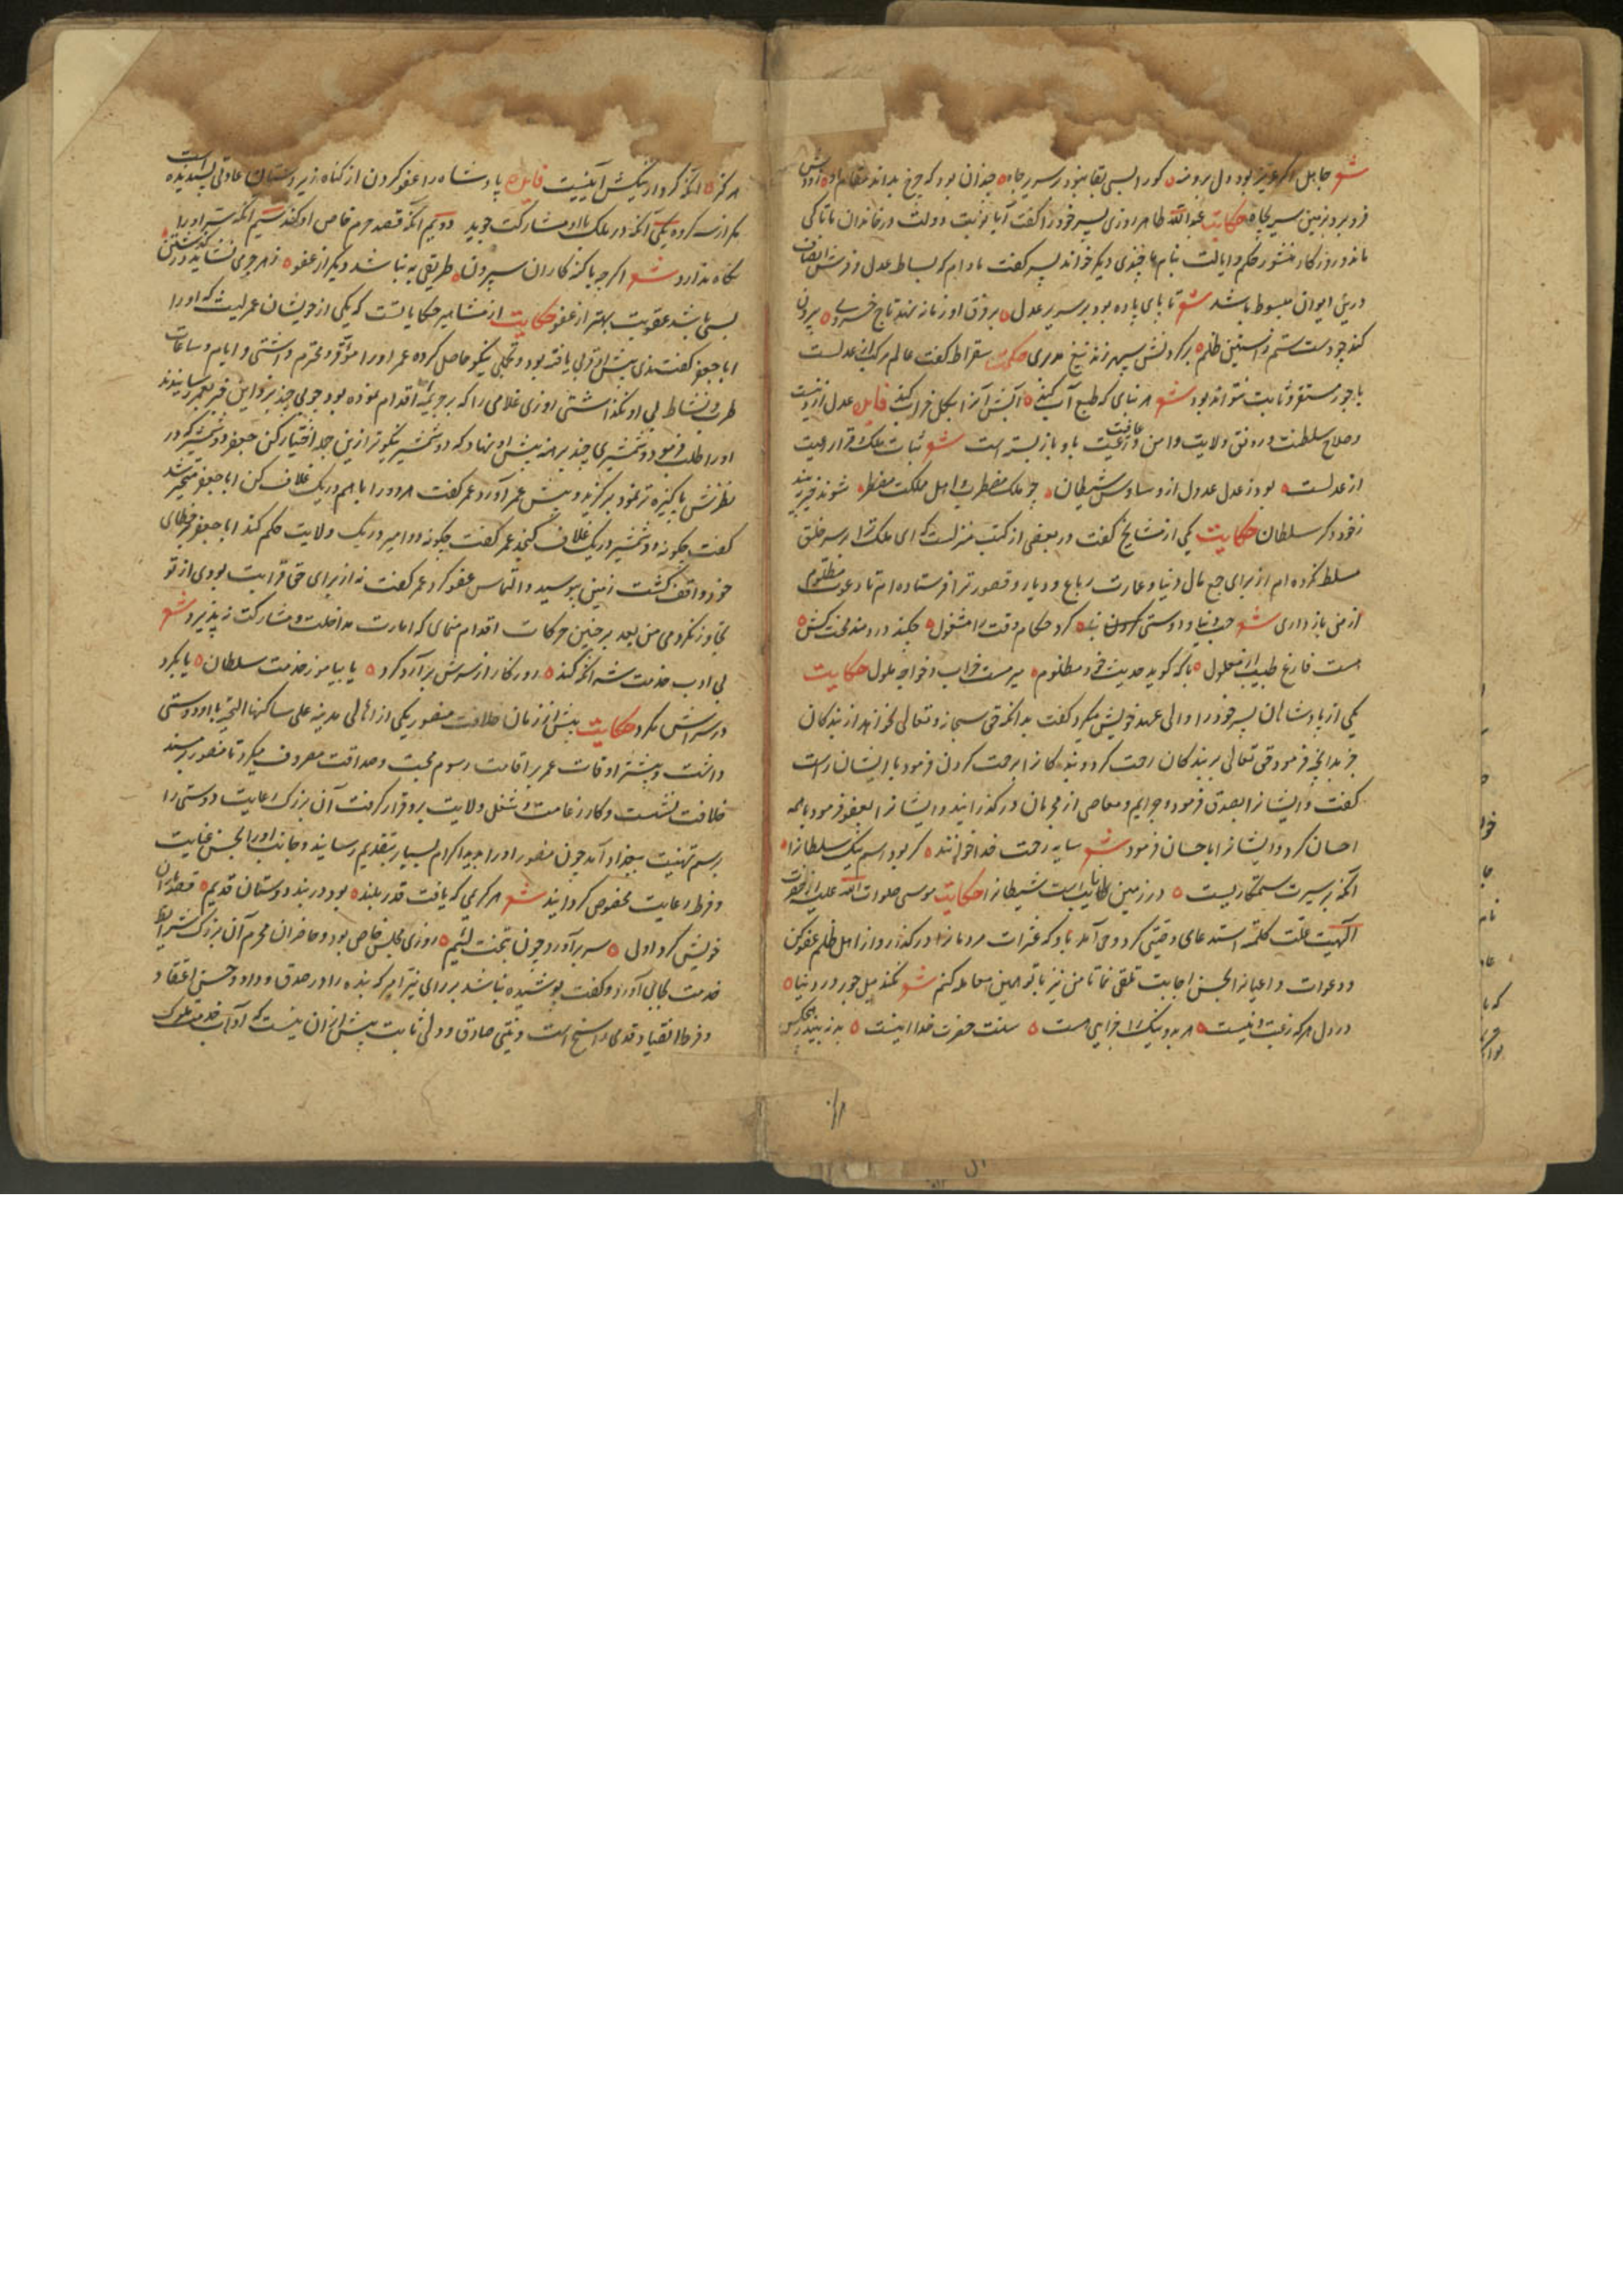 شعر جاهل اگر عزیز بود دل برو منه کورا بسی بقا نبود در سریر جاه چندان بود که چرخ بداند مقام او
فرو برد بزمین سر بجاه حکایت عبدالله طاهر روزی پسر خود را گفت آیا نوبت دولت در خاندان ما تا کی
ماند و روزگار منشور حکم و ایالت بنام ما چندی دیگر خواند پسر گفت مادام که بساط عدل و فرش انصاف
درین ایوان مبسوط باشد شعر تا پای پاده بود بر سریر عدل بر فرق او زمانه نهد تاج خسروی بیرون
کند چو دست ستم ز آستین ظلم بر گردنش سپهر زند تیغ حکمت سقراط گفت عالم مرکب از عدلست
با جور مستقر و ثابت نتواند بود شعر هر بنای که طبع آب کند آتش آنرا بکل خراب کند فایده عدل
وصلاح سلطنت و رونق ولایت و امن و عافیت رعیت باو باز بسته است شعر ثبات ملک و قرار رعیت
از عدلست بود ز عدل عدول از وساوس شیطان چو ملک مضطرب و اهل مملکت مضطر شوند
حکایت یکی از مشایخ گفت در بعضی از کتب منزلست که ای ملک ترا بر سر خلق
مسلط نکرده ام از برای جمع مال دنیا و عمارت رباع و دیار و قصور ترا فرستاده ام تا دعوت مظلوم
از من باز داری شعر حب دنیا و دوستی کرد حکام وقت را مشغول چکند دردمند محنت کش
هست فارغ طبیب از معلول با که گوید حدیث خود مظلوم میر مست خراب و خواجه ملول حکایت
یکی از پادشاهان پسر خود را والی عهد خویش میکرد گفت بدانکه حق سبحانه و تعالی نخواهد از بندگان
جز بدانچه فرمود حق تعالی بر بندگان رحمت کرد و بندگانرا برحمت کردن فرمود با ایشان راست
گفت و ایشانرا بصدق فرمود و جرایم و معاصی از مجرمان در گذرانید و ایشانرا بعفو فرمود با همه
احسان کرد و ایشانرا باحسان فرمود شعر سایه رحمت خدا خوانند گر بود اسم نیک سلطانرا
آنکه بر سیرت ستمکاریست در زمین نایبست شیطانرا حکایت موسی صلوات الله علیه از حضرت
الهیت علت کلمته استدعای وصیتی کرد وحی آمد باو که عثرات مردمانرا در گذار و از اهل ظلم عفو کن
و دعوات داعیانرا بحسن اجابت تلقی نما تا من نیز با تو همین معامله کنم شعر نکند میل جور در دنیا
در دل هر که رغبت دینست هر بد و نیک را جزایی هست سنت حضرت خدا اینست بد نبیند
هرگز آنکه کردار نیکش آیینست فایده پادشاه را عفو کردن از گناه زیردستان عادتی پسندیده است
مگر از سه گروه یکی آنکه در ملک با او مشارکت جوید دویم آنکه قصد حرم خاص او کند سیم آنکه سر او را
نگاه ندارد شعر اگر چه با گنه کاران سپردن طریقی به نباشد دیگر از عفو ز هر جرمی نشاید در گذشتن
بسی باشد عقوبت بهتر از عفو حکایت از مشاهیر حکایاتست که یکی از خویشان عمر لیث که او را
اباجعفر گفتندی پیش او قربی یافته بود و محلی نیکو حاصل کرده عمر او را موقر و محترم داشتی و ایام و ساعات
طرب و نشاط بی او نگذاشتی روزی غلامی را که بر جریمه اقدام نموده بود چوبی چند بزد این خبر بعمر رسانیدند
او را طلب فرمود و شمشیری چند برهنه پیش او نهاد که دو شمشیر نیکوتر ازین جمله اختیار کن جعفر دو شمشیر که در
نظرش پاکیزه تر نمود برگزید و پیش عمر آورد عمر گفت هر دو را با هم در یک غلاف کن اباجعفر متحیر شد
گفت چگونه دو شمشیر در یک غلاف گنجد عمر گفت چگونه دو امیر در یک ولایت حکم کند اباجعفر بر خطای
خود واقف گشت زمین ببوسید و التماس عفو کرد عمر گفت نه از برای حق قرابت بودی از تو
تجاوز نکردمی من بعد بر چنین حرکات اقدام منمای که امارت مداخلت و مشارکت نپذیرد شعر
بی ادب خدمت شه آنکه کند روزگار از سرش برآرد گرد یا بیاموز خدمت سلطان یا بگرد
در سراش مگرد حکایت پیش از زمان خلافت منصور یکی از اهالی مدینه علی ساکنها التحیه با او دوستی
داشت و بیشتر اوقات عمر بر اقامت رسوم محبت و صداقت مصروف میکرد تا منصور بر مسند
خلافت نشست و کار زعامت و شغل ولایت برو قرار گرفت آن بزرگ رعایت دوستی را
برسم تهنیت ببغداد آمد چون منصور او را بدید اکرام بسیار بتقدیم رسانید و جانب او را بحسن عنایت
و فرط رعایت مخصوص گردانید شعر هر کریمی که یافت قدر بلند بود در بند دوستان قدیم
خویش کرد اول سر برآورد چون بتخت لئیم روزی مجلس خاص بود و حاضران محرم آن بزرگ شرایط
خدمت بجای آورد و گفت پوشیده نباشد بر رای نیز امیر که بنده را در صدق و داد و حسن اعتقاد
و فرط انقیاد قدمی راسخ است و نیتی صادق و دلی ثابت پیش ازان نیست که آداب خدمت ملوک